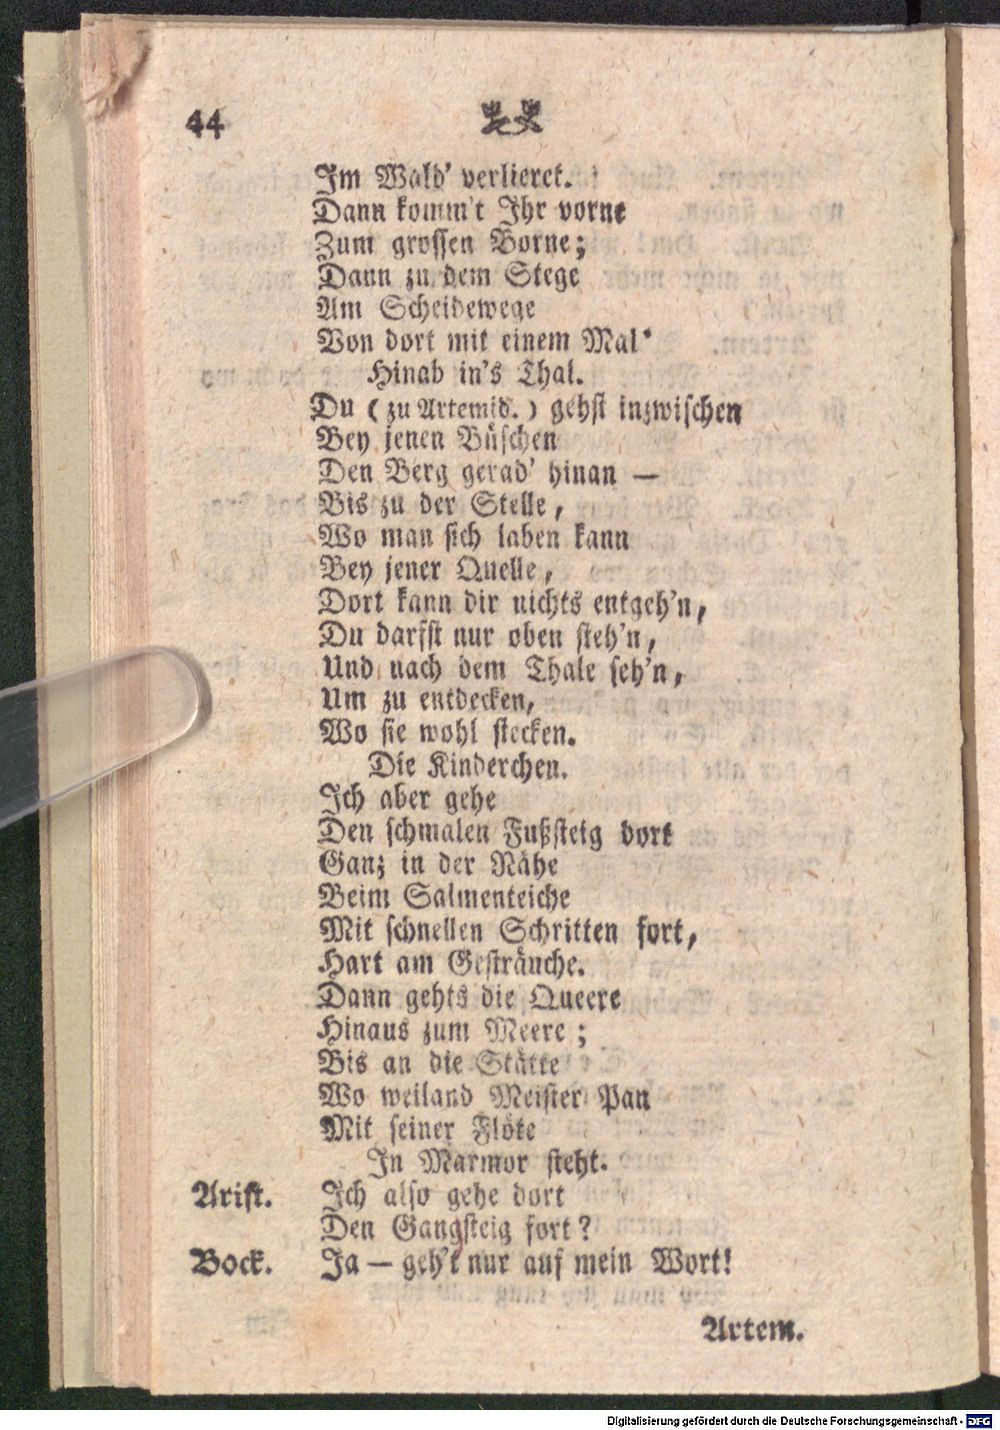 44
Im Wald' verlieret.
Dann komm't Ihr vorne
Zum grossen Borne;
Dann zu dem Stege
Am Scheidewege
Von dort mit einem Mal'
Hinab in's Thal.
Du (zu Artemid.) gehst inzwischen
Bey jenen Büschen
Den Berg gerad' hinan —
Bis zu der Stelle,
Wo man sich laben kann
Bey jener Quelle,
Dort kann dir nichts entgeh'n,
Du darfst nur oben steh'n,
Und nach dem Thale seh'n,
Um zu entdecken,
Wo sie wohl stecken.
Die Kinderchen.
Ich aber gehe
Den schmalen Fußsteig dort
Ganz in der Nähe
Beim Salmenteiche
Mit schnellen Schritten fort,
Hart am Gesträuche.
Dann gehts die Queere
Hinaus zum Meere;
Bis an die Stätte
Wo weiland Meister Pan
Mit seiner Flöte
In Marmor steht.
Arist. Ich also gehe dort
Den Gangsteig fort?
Bock. Ja — geh't nur auf mein Wort!
Artem.
Digitalisierung gefördert durch die Deutsche Forschungsgemeinschaft - DFG